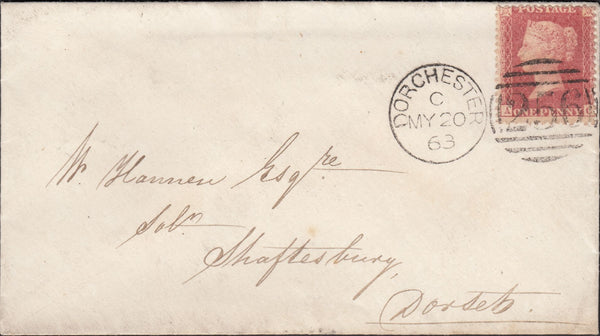 POSTAGE
ONE PENNY
256
DORCHESTER
C
MY 20
63
W. Hannen Esqre
Solr
Shaftesbury,
Dorset